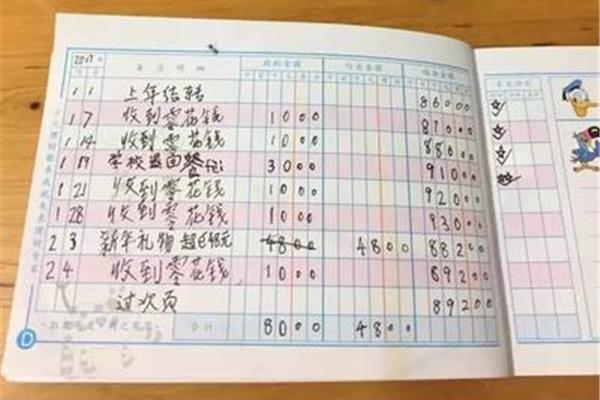 2017
1 1 上年结转 86000
1 7 收到零花钱 1000 87000
1 14 收到零花钱 1000 88000
1 19 学校退回餐fei 3000 91000
1 21 收到零花钱 1000 92000
1 28 收到零花钱 1000 93000
2 3 新年礼物 48元 4800 4800 88200
2 4 收到零花钱 1000 89200
过次页 89200
合计 8000 4800
D